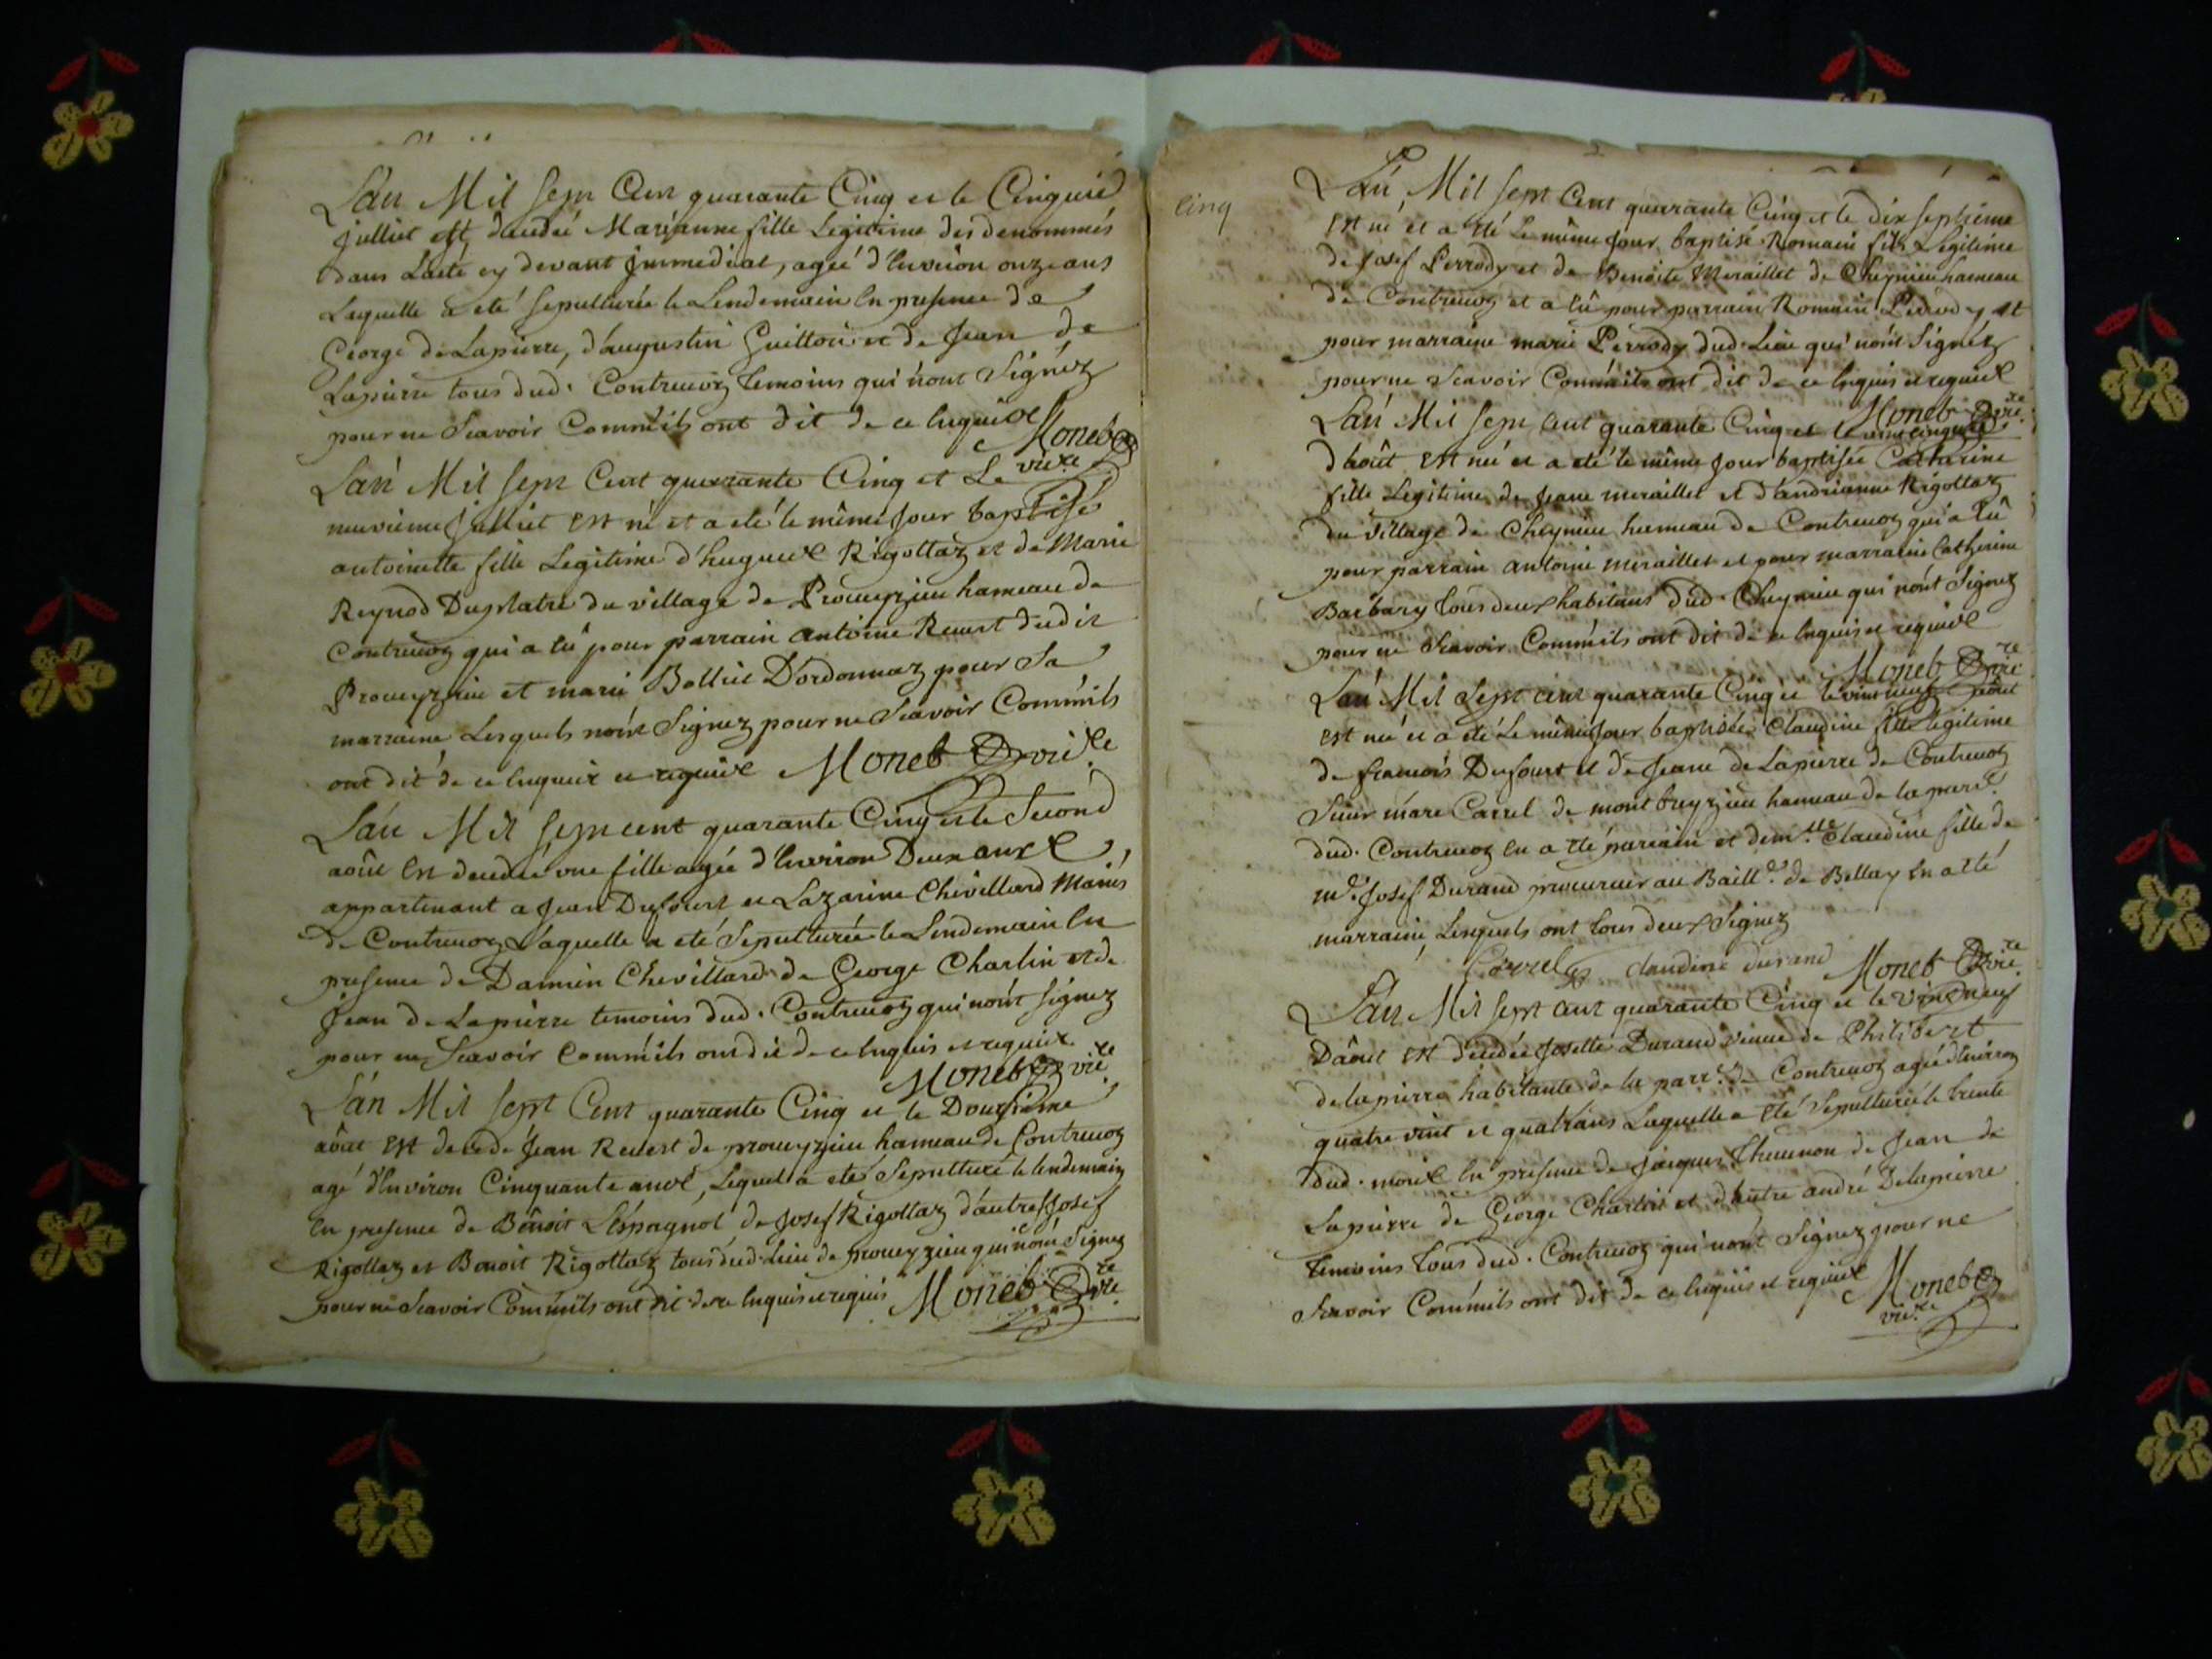 L'an Mil sept Cent quarante Cinq et le Cinquie
Julliet est decedée Marianne fille Legitime des denommés
dans Lacte cy devant Jmmediat, agée d'Environ onze ans
Laquelle a eté sepulturée le Lendemain En presence de
George de Lapierre, d'augustin Guitton et de Jean de
Lapierre tous dud. Contrevoz temoins qui n'ont Signéz
pour ne Scavoir Comm'ils ont dit de ce Enquis
Moneb
vic.re
L'an Mil sept Cent quarante Cinq et Le
neuvieme Julliet est né et a eté le même Jour baptisé
antoinette fille Legitime d'hugues Rigottaz et de Marie
Reynod Duplatre du village de Proveyzieu hameau de
Contrevoz qui a Eû pour parrain antoine Revert dudit
Proveyzieu et marie Bolliet D'ordonnaz pour Sa
marraine Lesquels n'ont Signez pour ne Scavoir Comm'ils
ont dit de ce Enquis et requis Moneb vic.re
L'an Mil sept cent quarante Cinq et le Second
août Est decedée une fille agée d'Environ Deux ans
appartenant a Jean Dufourt et Lazarine Chevillard Mariés
de Contrevoz Laquelle a eté Sepulturée le Lendemain En
presence de Damien Chevillard de George Charlin et de
Jean de Lapierre temoins dud. Contrevoz qui n'ont signez
pour ne Scavoir Comm'ils ont dit de ce Enquis et requis
Moneb vic.re
L'an Mil sept Cent quarante Cinq et le Douzieme
aôut est decedé Jean Revert de proveyzieu hameau de Contrevoz
agé d'Environ Cinquante ans, Lequel a eté Sepulturé le lendemain
En presence de Benoit L'espagnol de Josef Rigottaz d'autre Josef
Rigottaz et Benoit Rigottaz tous dud. Lieu de proveyzieu qui n'ont Signez
pour ne Scavoir Comm'ils ont dit de ce Enquis et requis Moneb vic.re
cinq
L'an Mil sept Cent quarante Cinq et le dix septieme
est né et a eté Le même Jour baptisé Romain fils Legitime
de Josef Perrody et de Benoite Meraillet de Cheynieu hameau
de Contrevoz et a Eû pour parrain Romain Perrody et
pour marraine marie Perrody dud. Lieu qui n'ont Signéz
pour ne Scavoir Comm'ils ont dit de ce Enquis et requis
Moneb vic.re
L'an Mil sept cent quarante Cinq et le vint cinquie
d'août est née et a eté le même Jour baptisée Catharine
fille Legitime de Jean meraillet et d'andrianne Rigottaz
du village de Cheynieu hameau de Contrevoz qui a Eû
pour parrain antoine meraillet et pour marraine Catherine
Barbary tous deux habitans dud. Cheynieu qui n'ont Signez
pour ne Scavoir Comm'ils ont dit de ce Enquis et requis
Moneb vic.re
L'an Mil Sept cent quarante Cinq et le vint neuf août
est née et a eté Le même Jour baptisée Claudine fille legitime
de francois Dufourt et de Jeane de Lapierre de Contrevoz
Sieur marc Carrel de montbreyzieu hameau de la parr.
dud. Contrevoz En a eté parrain et dem.lle Claudine fille de
m.e Josef Durand procureur au Baill.e de Bellay En a eté
marraine, Lesquels ont tous deux Signez
Carrel claudine durand Moneb vic.re
L'an Mil sept cent quarante Cinq et le vint neuf
D'aôut est decedée Josette Durand veuve de Philibert
de lapierre habitante de la parr.e de Contrevoz agée d'Environ
quatre vint et quatr'ans Laquelle a eté Sepulturée le trente
dud. mois En presence de Jacques Thevenon de Jean de
Lapierre de George Charlin et d'autre andré Delapierre
temoins tous dud. Contrevoz qui n'ont Signez pour ne
Scavoir Comm'ils ont dit de ce Enquis et requis Moneb
vic.re